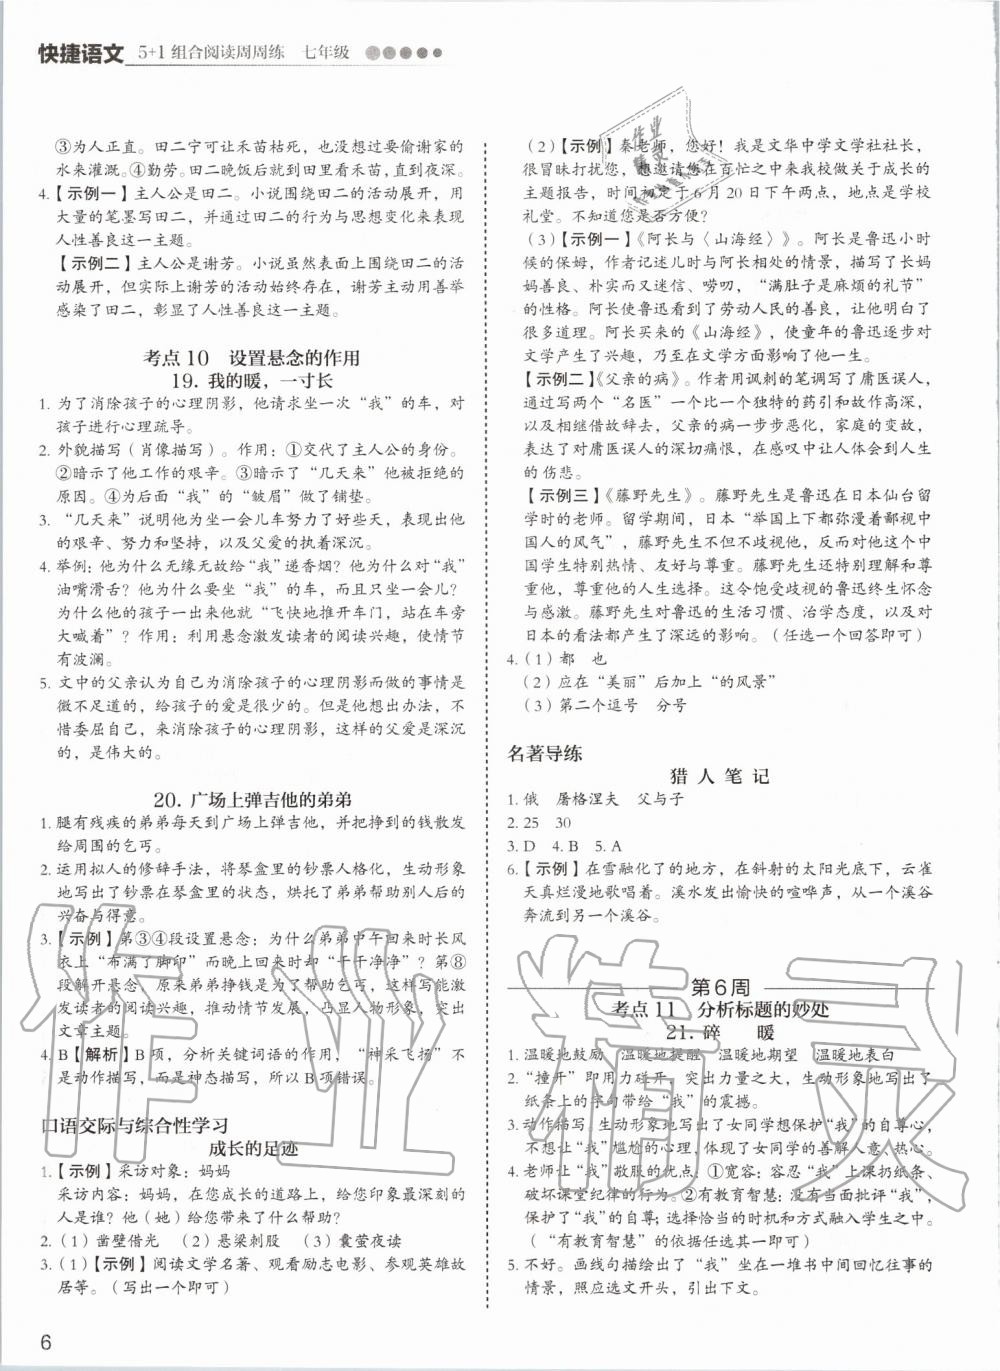 快捷语文 5+1组合阅读周周练 七年级
③为人正直。田二宁可让禾苗枯死，也没想过要偷谢家的
水来灌溉。④勤劳。田二晚饭后就到田里看禾苗，直到夜深。
4.【示例一】主人公是田二。小说围绕田二的活动展开，用
大量的笔墨写田二，并通过田二的行为与思想变化来表现
人性善良这一主题。
【示例二】主人公是谢芳。小说虽然表面上围绕田二的活
动展开，但实际上谢芳的活动始终存在，谢芳主动用善举
感染了田二，彰显了人性善良这一主题。
考点10 设置悬念的作用
19. 我的暖，一寸长
1. 为了消除孩子的心理阴影，他请求坐一次“我”的车，对
孩子进行心理疏导。
2. 外貌描写（肖像描写）。作用：①交代了主人公的身份。
②暗示了他工作的艰辛。③暗示了“几天来”他被拒绝的
原因。④为后面“我”的“皱眉”做了铺垫。
3. “几天来”说明他为坐一会儿车努力了好些天，表现出他
的艰辛、努力和坚持，以及父爱的执着深沉。
4. 举例：他为什么无缘无故给“我”递香烟？他为什么对“我”
油嘴滑舌？他为什么要坐“我”的车，而且只坐一会儿？
为什么他的孩子一出来他就“飞快地推开车门，站在车旁
大喊着”？作用：利用悬念激发读者的阅读兴趣，使情节
有波澜。
5. 文中的父亲认为自己为消除孩子的心理阴影而做的事情是
微不足道的，给孩子的爱是很少的。但是他想出办法，不
惜委屈自己，来消除孩子的心理阴影，这样的父爱是深沉
的，是伟大的。
20. 广场上弹吉他的弟弟
1. 腿有残疾的弟弟每天到广场上弹吉他，并把挣到的钱散发
给周围的乞丐。
2. 运用拟人的修辞手法，将琴盒里的钞票人格化，生动形象
地写出了钞票在琴盒里的状态，烘托了弟弟帮助别人后的
兴奋与得意。
3.【示例】第③④段设置悬念：为什么弟弟中午回来时长风
衣上“布满了脚印”而晚上回来时却“干干净净”？第⑧
段解开悬念，原来弟弟将钱给了乞丐，这样写能激
发读者的阅读兴趣，推动情节发展，凸显人物形象，突出
文章主题。
4. B【解析】B项，分析关键词语的作用，“神采飞扬”不
是动作描写，而是神态描写，所以B项错误。
口语交际与综合性学习
成长的足迹
1.【示例】采访对象：妈妈
采访内容：妈妈，在您成长的道路上，给您印象最深刻的
人是谁？他（她）给您带来了什么帮助？
2.（1）凿壁借光 （2）悬梁刺股 （3）囊萤夜读
3.（1）【示例】阅读文学名著、观看励志电影、参观英雄故
居等。（写出一个即可）
（2）【示例】秦老师，您好！我是文华中学文学社社长，
很冒昧打扰您，想邀请您在百忙之中来我校做关于成长的
主题报告，时间初定于6月20日下午两点，地点是学校
礼堂。不知道您是否方便？
（3）【示例一】《阿长与〈山海经〉》。阿长是鲁迅小时
候的保姆，作者记述儿时与阿长相处的情景，描写了长妈
妈善良、朴实而又迷信、唠叨，“满肚子是麻烦的礼节”
的性格。阿长使鲁迅看到了劳动人民的善良，让他明白了
很多道理。阿长买来的《山海经》，使童年的鲁迅逐步对
文学产生了兴趣，乃至在文学方面影响了他一生。
【示例二】《父亲的病》。作者用讽刺的笔调写了庸医误人，
通过写两个“名医”一个比一个独特的药引和故作高深，
以及相继借故辞去，父亲的病一步步恶化，家庭的变故，
表达了对庸医误人的深切痛恨，在感叹中让人体会到人生
的伤悲。
【示例三】《藤野先生》。藤野先生是鲁迅在日本仙台留
学时的老师。留学期间，日本“举国上下都弥漫着鄙视中
国人的风气”，藤野先生不但不歧视他，反而对他这个中
国学生特别热情、友好与尊重。藤野先生理解他并尊重
他，尊重他的人生选择。这令饱受歧视的鲁迅终生怀念
与感激。藤野先生对鲁迅的生活习惯、治学态度，以及对
日本的看法都产生了深远的影响。（任选一个回答即可）
4.（1）都 也
（2）应在“美丽”后加上“的风景”
（3）第二个逗号 分号
名著导练
猎人笔记
1. 俄 屠格涅夫 父与子
2. 25 30
3. D 4. B 5. A
6.【示例】在雪融化了的地方，在斜射的太阳光底下，云雀
天真烂漫地歌唱着。溪水发出愉快的喧哗声，从一个溪谷
奔流到另一个溪谷。
第6周
考点11 分析标题的妙处
21. 碎 暖
1. 温暖地鼓励 温暖地提醒 温暖地期望 温暖地表白
2. “撞开”即用力碰开，突出力量之大，生动形象地写出了
纸条上的字句带给“我”的震撼。
3. 动作描写，生动形象地写出了女同学想保护“我”的自尊心，
不想让“我”尴尬的心理，体现了女同学的善解人意、热心。
4. 老师让“我”敬服的优点：①宽容：容忍“我”上课扔纸条、
破坏课堂纪律的行为。②有教育智慧：没有当面批评“我”，
保护了“我”的自尊；选择恰当的时机和方式融入学生之中。
（“有教育智慧”的依据任选其一即可）
5. 不好。画线句描绘出了“我”坐在一堆书中间回忆往事的
情景，照应选文开头，引出下文。
6
作业精灵